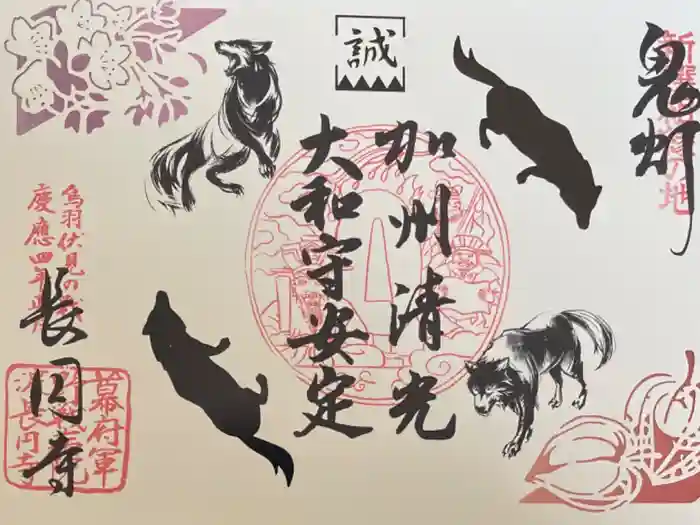 鬼灯
新選組
の地
誠
加州清光
大和守安定
鳥羽伏見の
慶應四年
長円寺
幕府軍
長円寺